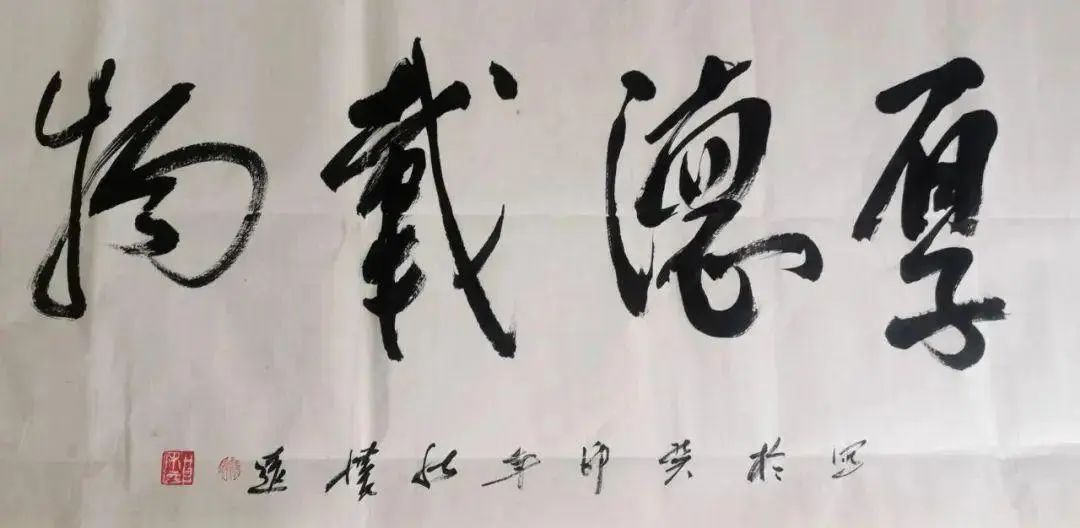 厚德载物
写於癸卯年秋